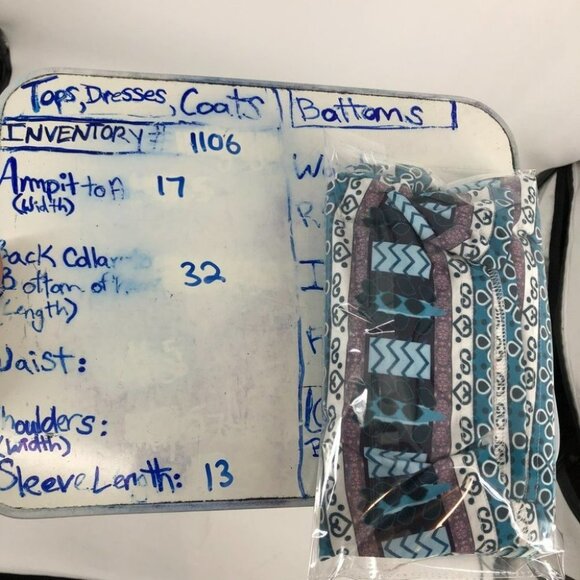 Tops, Dresses, Coats
INVENTORY# 1106
Armpit to 17
(Width)
Back Colla 32
Bottom of
(Length)
Waist:
Shoulders:
(width)
Sleeve Length: 13
Bottoms